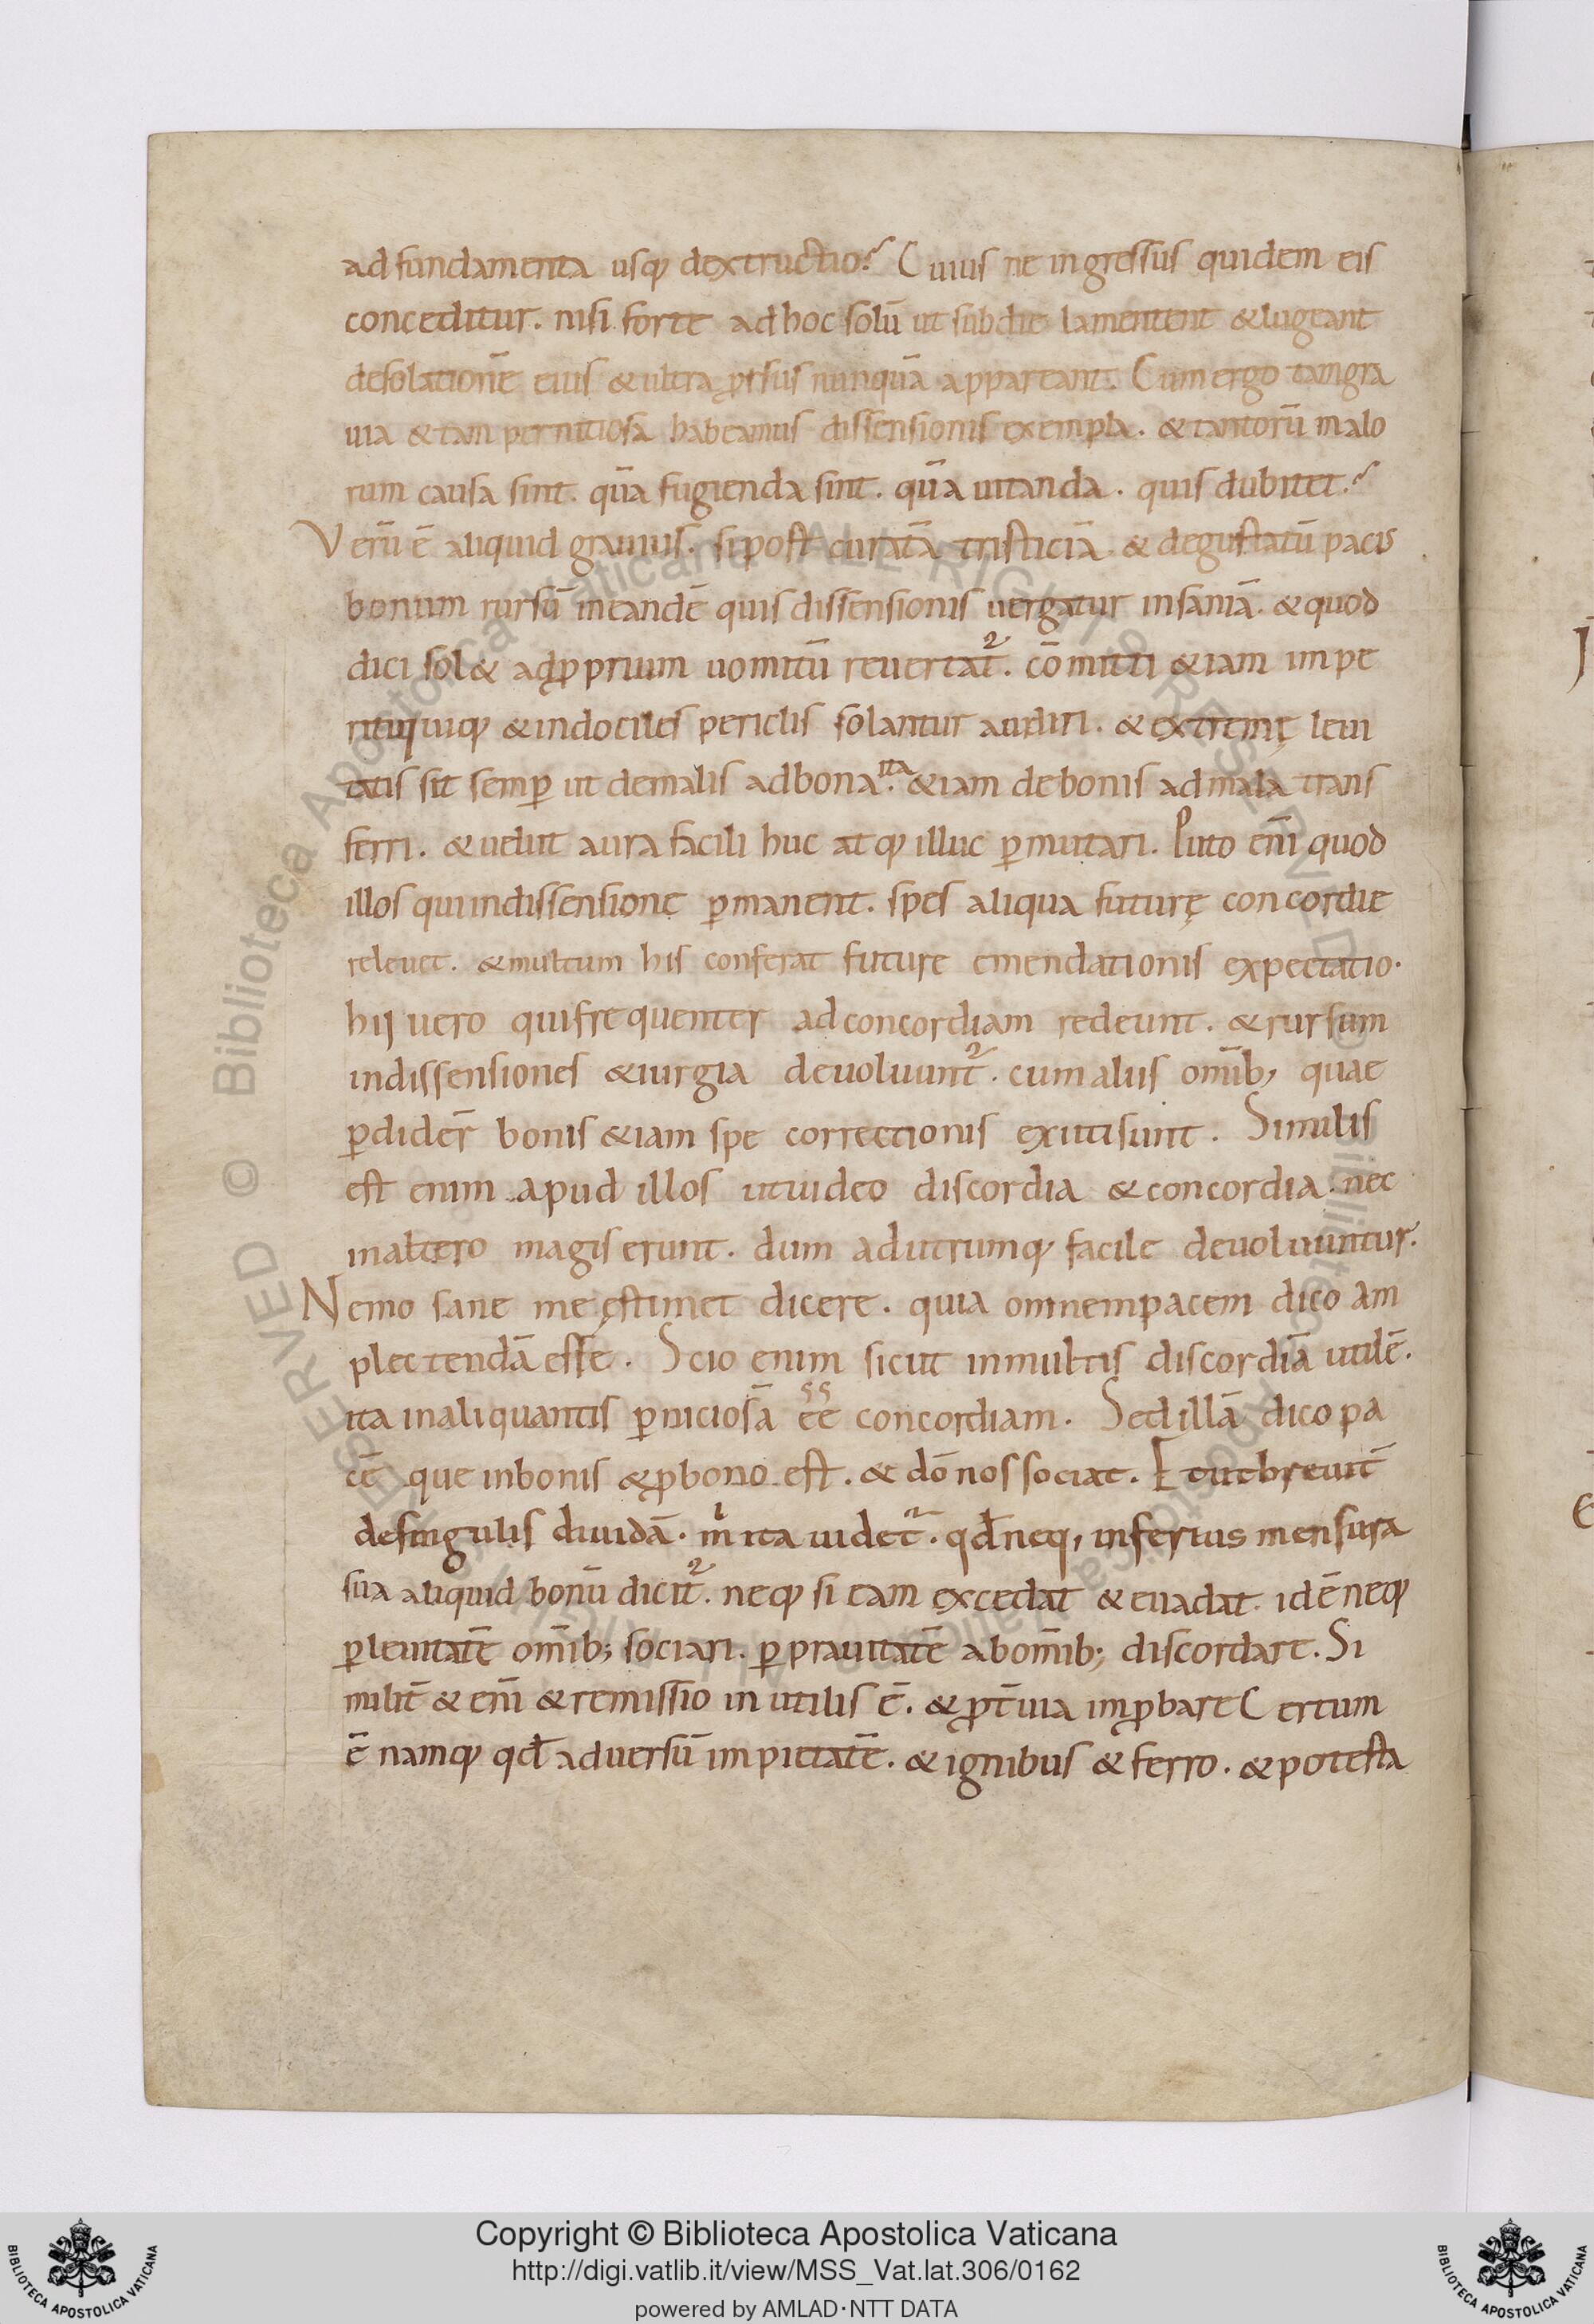 ad fundamenta usq; dextructio? Cuius ne ingressus quidem eis
conceditur. nisi forte ad hoc solū ut sub die lamentent & lugeant
desolationē eius & ultra ꝓrsus nunquā appareant. Cum ergo tam gra
uia & tam pernitiosa habeamus dissensionis exempla. & tantorū malo
rum causa sint. quā fugienda sint. quā uitanda. quis dubitet?
Verū ē aliquid grauius. si post curatā tristiciā & degustatū pacis
bonum rursū in eandē quis dissensionis uergatur insaniā. & quod
dici sol& ad ꝓprium uomitū reuertat᷑. cōmitti &iam impe
ritiquiq; & indociles periclis solantur audiri. & extremę leui
tatis sit semꝑ ut de malis ad bona. ita &iam de bonis ad mala trans
ferri. & uelut aura facili huc atq; illuc ꝑmutari. Puto enī quod
illos qui in dissensione ꝑmanent. spes aliqua futurę concordie
releuet. & multum his conferat future emendationis expectatio.
hij uero qui frequenter ad concordiam redeunt. & rursum
in dissensiones & iurgia deuoluunt᷑. cum aliis omīb; quae
ꝑdider̄ bonis &iam spe correctionis exuti sunt. Similis
est enim apud illos ut uideo discordia & concordia. nec
in altero magis erunt. dum ad utrumq; facile deuoluuntur.
Nemo sane me ęstimet dicere. quia omnem pacem dico am
plectendā esse. Scio enim sicut in multis discordiā utilē.
ita in aliquantis ꝑniciosā ēe ss concordiam. Sed illā dico pa
cē que in bonis & ꝓ bono est. & dō nos sociat. Et ut breuit̄
de singulis diuidā. m̍ ita uidet᷑. qd̄ neq; inferius mensura
sua aliquid bonū dicit᷑. neq; si eam excedat & euadat. idē neq;
ꝑ leuitatē omīb; sociari. ꝑ prauitatē ab omīb; discordare. Si
milit̄ & enī & remissio inutilis ē. & ꝓt̄uia imꝓbare Certum
ē namq; qd̄ aduersū impietatē. & ignibus & ferro. & potesta
Copyright © Biblioteca Apostolica Vaticana
http://digi.vatlib.it/view/MSS_Vat.lat.306/0162
powered by AMLAD·NTT DATA
BIBLIOTECA APOSTOLICA VATICANA
BIBLIOTECA APOSTOLICA VATICANA